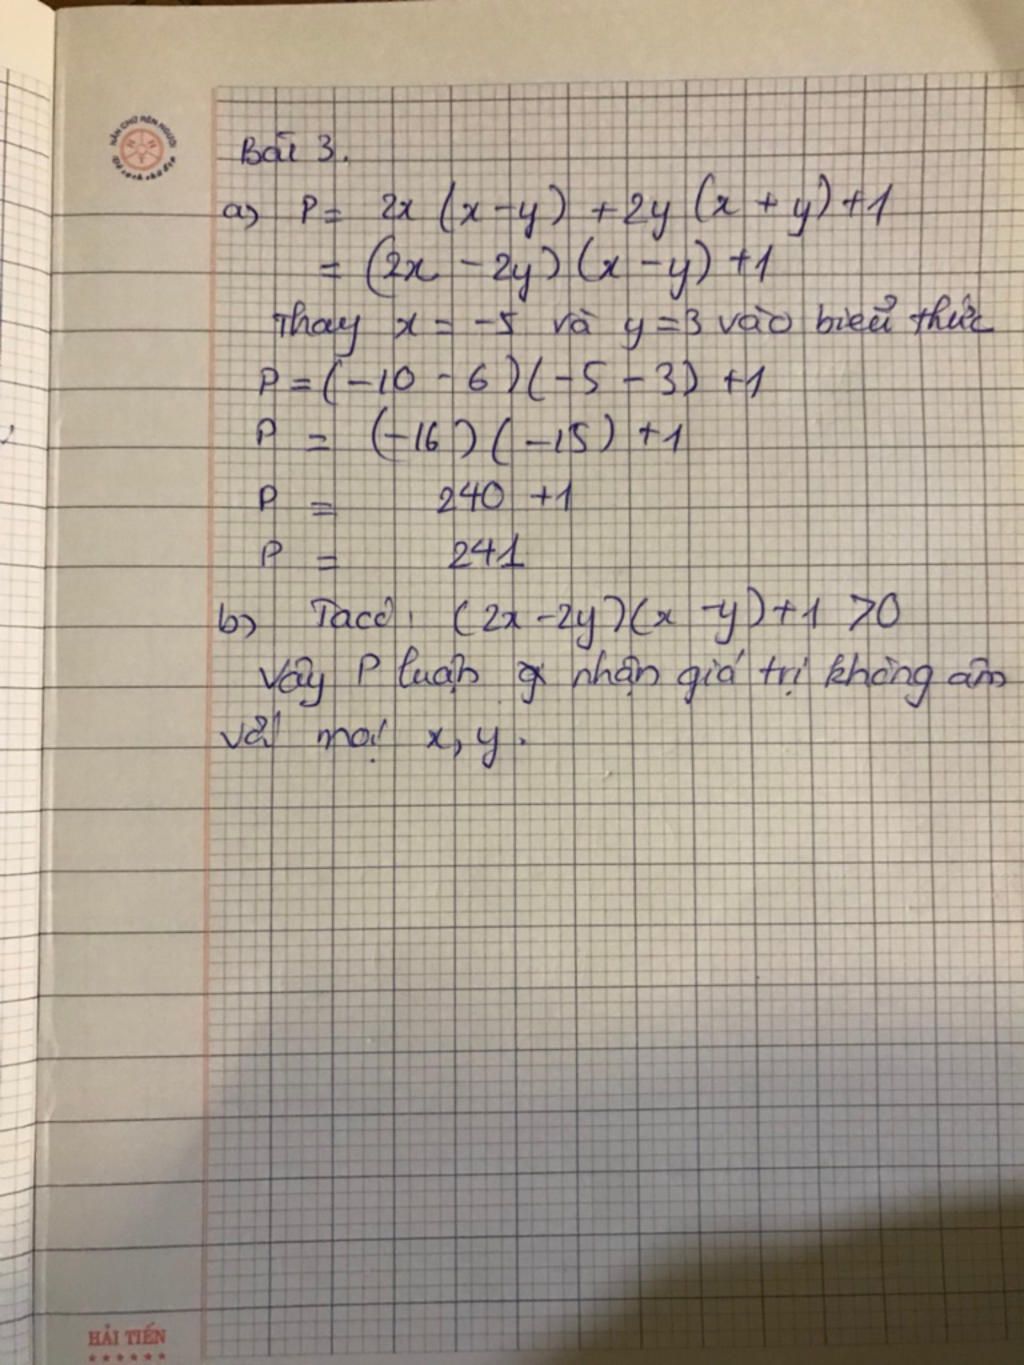 NÂN CHỮ NÉN NGƯỜI
Bài 3.
a) P = 2x (x - y) + 2y (x + y) + 1
= (2x - 2y) (x - y) + 1
Thay x = -5 và y = 3 vào biểu thức
P = (-10 - 6) (-5 - 3) + 1
P = (-16) (-15) + 1
P = 240 + 1
P = 241
b) Ta có: (2x - 2y) (x - y) + 1 > 0
Vậy P luận nhận giá trị không âm
với mọi x, y.
HẢI TIẾN